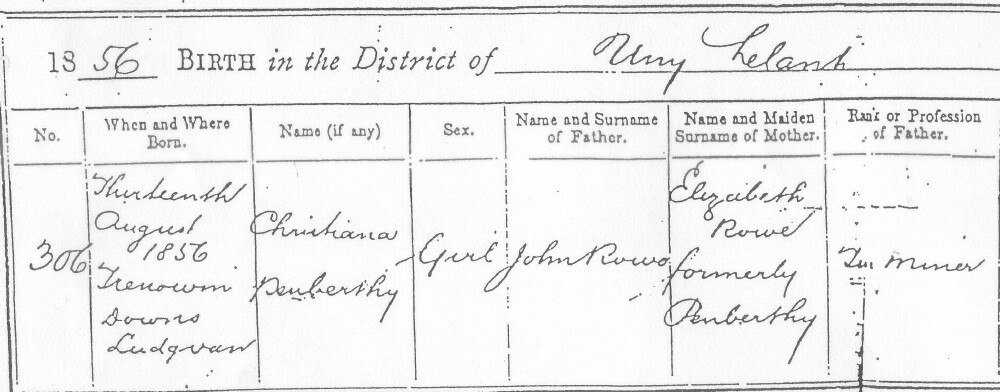 1856 BIRTH in the District of Uny Lelant
No.
When and Where
Born.
Name (if any)
Sex.
Name and Surname
of Father.
Name and Maiden
Surname of Mother.
Rank or Profession
of Father.
306
Thirteenth
August
1856
Trenowin
Downs
Ludgvan
Christiana
Penberthy
Girl
John Rowe
Elizabeth
Rowe
formerly
Penberthy
Tin Miner